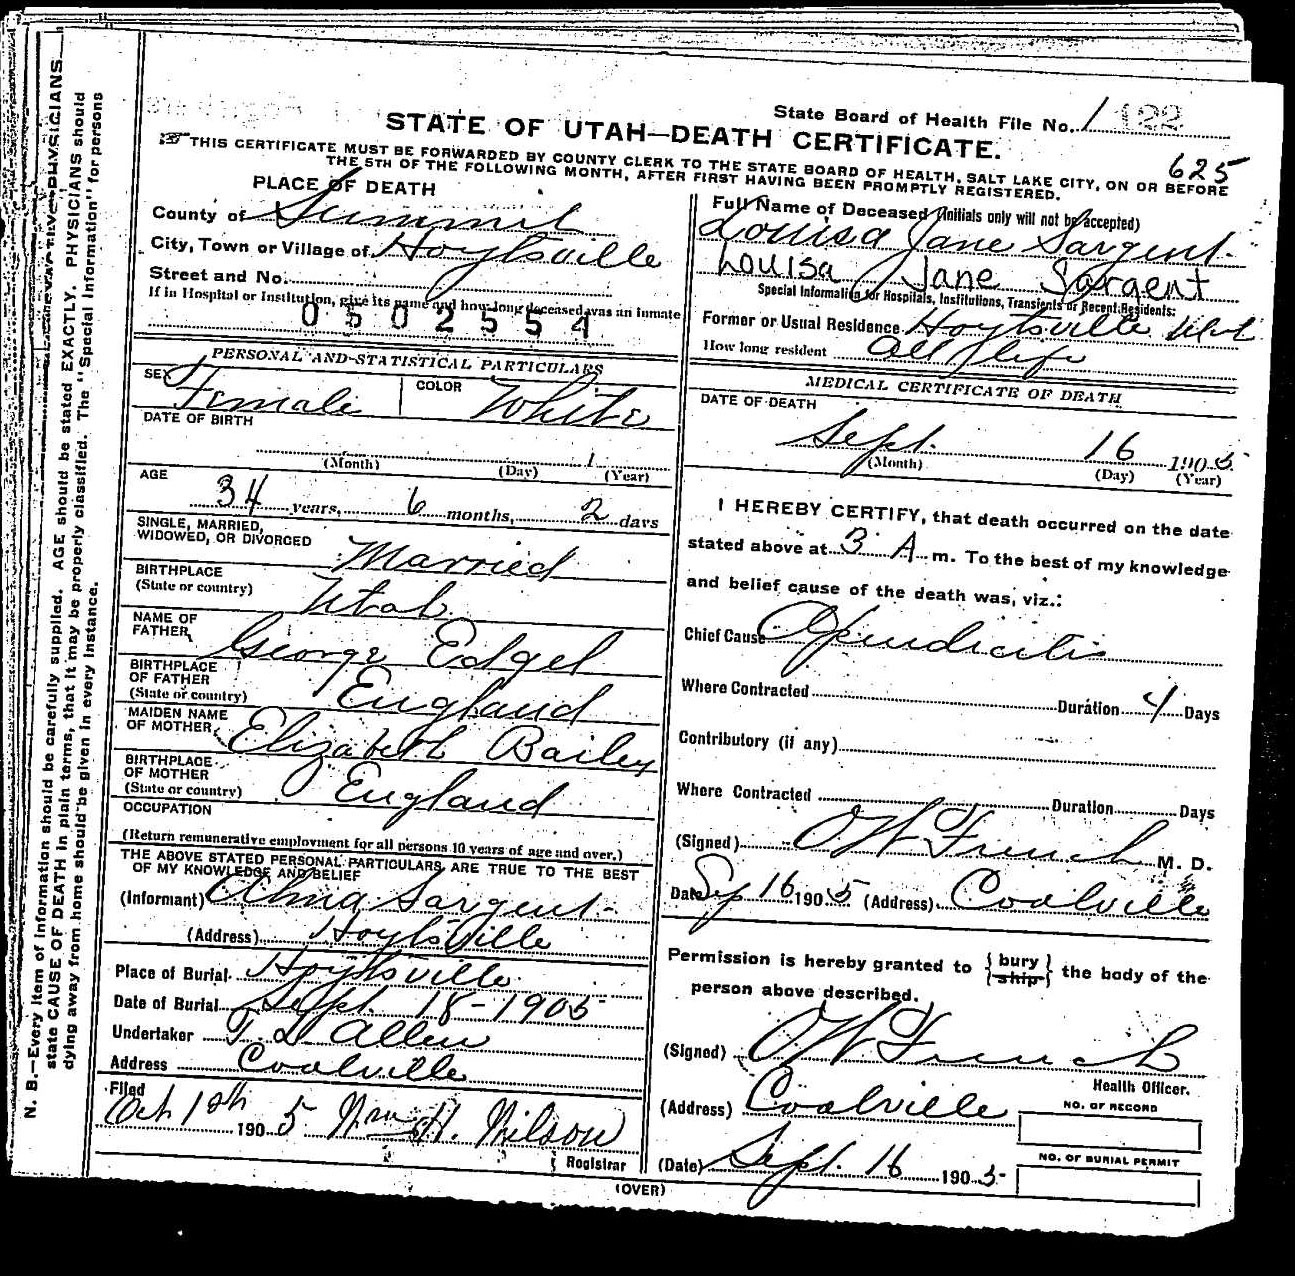 State Board of Health File No. 1 122
STATE OF UTAH—DEATH CERTIFICATE.
625
THIS CERTIFICATE MUST BE FORWARDED BY COUNTY CLERK TO THE STATE BOARD OF HEALTH, SALT LAKE CITY, ON OR BEFORE
THE 5TH OF THE FOLLOWING MONTH, AFTER FIRST HAVING BEEN PROMPTLY REGISTERED.
PLACE OF DEATH
County of Summit
City, Town or Village of Hoytsville
Street and No.
If in Hospital or Institution, give its name and how long deceased was an inmate
0502554
PERSONAL AND STATISTICAL PARTICULARS
SEX Female COLOR White
DATE OF BIRTH
1
(Month) (Day) (Year)
AGE
34 years, 6 months, 2 days
SINGLE, MARRIED,
WIDOWED, OR DIVORCED Married
BIRTHPLACE
(State or country) Utah
NAME OF
FATHER George Edgel
BIRTHPLACE
OF FATHER
(State or country) England
MAIDEN NAME
OF MOTHER Elizabeth Bailey
BIRTHPLACE
OF MOTHER
(State or country) England
OCCUPATION
(Return remunerative employment for all persons 10 years of age and over.)
THE ABOVE STATED PERSONAL PARTICULARS ARE TRUE TO THE BEST
OF MY KNOWLEDGE AND BELIEF
(Informant) Alma Sargent
(Address) Hoytsville
Place of Burial Hoytsville
Date of Burial Sept. 18-1905
Undertaker T L Allen
Address Coalville
Filed
Oct 10th 1905 Wm H. Wilson
Registrar
Full Name of Deceased (Initials only will not be accepted)
Louisa Jane Sargent.
Louisa Jane Sargent
Special Information for Hospitals, Institutions, Transients or Recent Residents:
Former or Usual Residence Hoytsville Utah
How long resident All life
MEDICAL CERTIFICATE OF DEATH
DATE OF DEATH
Sept. 16 1905
(Month) (Day) (Year)
I HEREBY CERTIFY, that death occurred on the date
stated above at 3 A m. To the best of my knowledge
and belief cause of the death was, viz.:
Chief Cause Apendicitis
Where Contracted Duration 4 Days
Contributory (if any)
Where Contracted Duration Days
(Signed) O W French M. D.
Date Sep 16 1905 (Address) Coalville
Permission is hereby granted to { bury ship } the body of the
person above described.
(Signed) O W French
Health Officer.
(Address) Coalville
NO. OF RECORD
(Date) Sept. 16 1905
NO. OF BURIAL PERMIT
(OVER)
N. B.—Every item of information should be carefully supplied. AGE should be stated EXACTLY. PHYSICIANS should
state CAUSE OF DEATH in plain terms, that it may be properly classified. The "Special Information" for persons
dying away from home should be given in every instance.